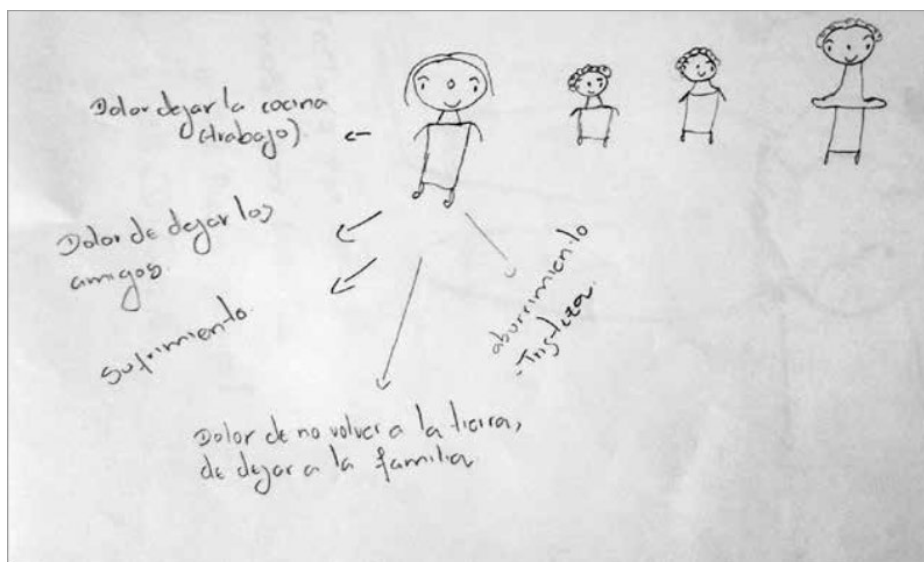 Dolor dejar la cocina
(trabajo).
Dolor de dejar los
amigos.
sufrimiento.
aburrimiento
-Tristeza.
Dolor de no volver a la tierra,
de dejar a la familia